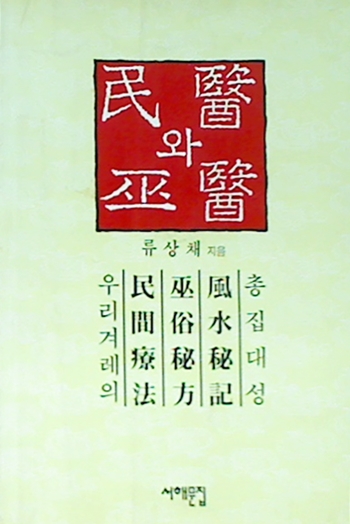 民醫
와
巫醫
류상채 지음
우리겨레의
民間療法
巫俗秘方
風水秘記
총집대성
서해문집